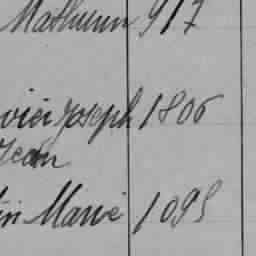 Mathurin 917
vier Joseph 1806
Jean
in Marie 1095